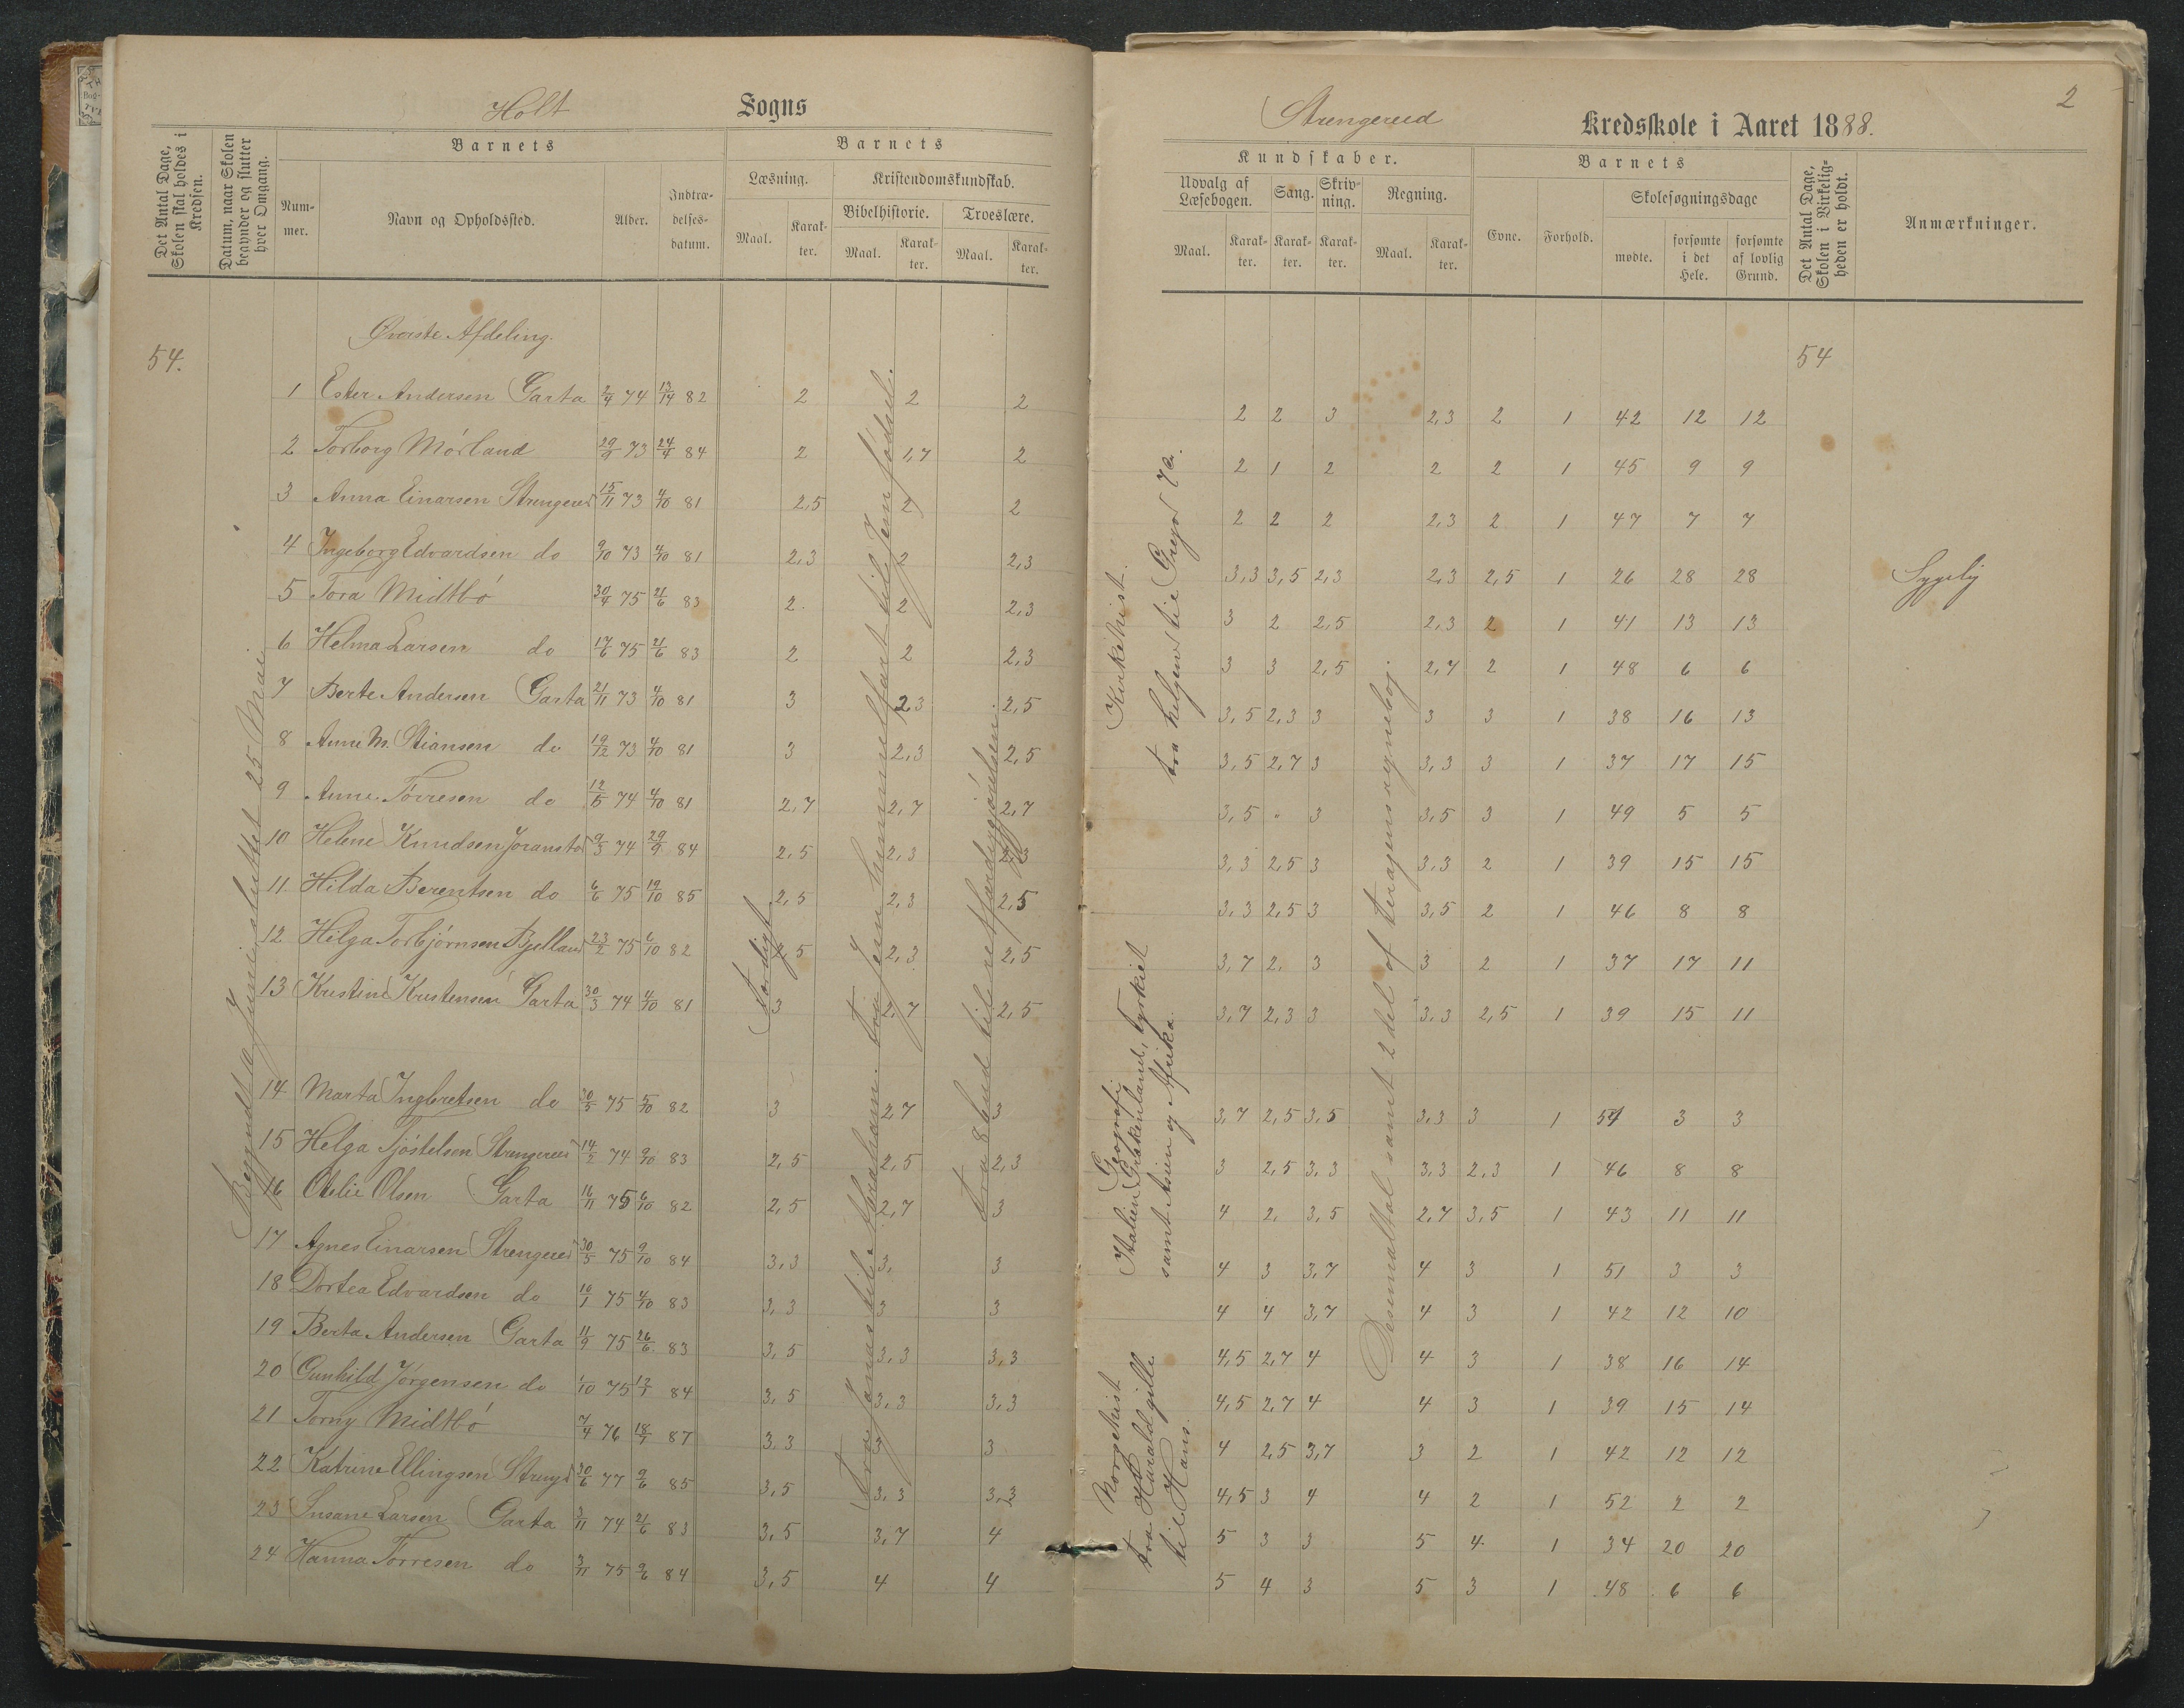 Holt Sogns
Strengereid Kredsskole i Aaret 1888.
2
Det Antal Dage, Skolen skal holdes i Kredsen.
Datum, naar Skolen begynder og slutter hver Omgang.
Barnets
Num-
mer.
Navn og Opholdssted.
Alder.
Indtræ-
delses-
datum.
Barnets
Læsning.
Maal.
Karak-
ter.
Kristendomskundskab.
Bibelhistorie.
Maal.
Karak-
ter.
Troeslære.
Maal.
Karak-
ter.
Kundskaber.
Udvalg af
Læsebogen.
Maal.
Karak-
ter.
Sang.
Karak-
ter.
Skriv-
ning.
Karak-
ter.
Regning.
Maal.
Karak-
ter.
Barnets
Evne.
Forhold.
Skolesøgningsdage
mødte.
forsømte
i det
Hele.
forsømte
af lovlig
Grund.
Det Antal Dage, Skolen i Virkelig-
heden er holdt.
Anmærkninger.
Øverste Afdeling.
54.
54
1 Ester Andersen Garta 2/4 74 82 2 2 2 2 2 3 2,3 2 1 42 12 12
2 Torborg Mørland 29/9 73 24/4 84 2 1,7 2 2 1 2 2 2 1 45 9 9
3 Anna Einarsen Strengereid 15/11 73 4/10 81 2,5 2 2 2 2 2 2,3 2 1 47 7 7
4 Ingeborg Edvardsen do 9/10 73 4/10 81 2,3 2 2,3 3,3 3,5 2,3 2,3 2,5 1 26 28 28 Sygelig
5 Tora Midtbö 30/4 75 21/6 83 2. 2 2,3 3 2 2,5 2,3 2 1 41 13 13
6 Helma Larsen do 17/6 75 21/6 83 2 2 2,3 3 3 2,5 2,7 2 1 48 6 6
7 Berte Andersen Garta 21/11 73 4/10 81 3 2,3 2,5 3,5 2,3 3 3 3 1 38 16 13
8 Anne M. Stiansen do 19/12 73 4/10 81 3 2,3 2,5 3,5 2,7 3 3,3 3 1 37 17 15
9 Anne Torresen do 12/5 74 4/10 81 2,7 2,7 2,7 3,5 " 3 3,5 3 1 49 5 5
10 Helene Knudsen 9/3 74 29/9 84 2,5 2,3 2,3 3,3 2,5 3 3,3 2 1 39 15 15
11 Hilda Berentsen do 6/6 75 19/10 85 2,5 2,3 2,5 3,3 2,5 3 3,5 2 1 46 8 8
12 Hilga Torbjörnsen Bjelland 23/2 75 6/10 82 2,5 2,3 2,5 3,7 2. 3 3 2 1 37 17 11
13 Kristine Kristensen Garta 30/3 74 4/10 81 3 2,7 2,5 3,7 2,3 3 3,3 2,5 1 39 15 11
14 Marta Ingbretsen do 30/5 75 5/10 82 3 2,7 3 3,7 2,5 3,5 3,3 3 1 51 3 3
15 Helga Tjöstelsen Strengereid 14/2 74 9/10 83 2,5 2,5 2,3 3 2,5 3,3 3,3 2,3 1 46 8 8
16 Otelie Olsen Garta 16/11 75 6/10 82 2,5 2,7 3 4 2. 3,5 2,7 3,5 1 43 11 11
17 Agnes Einarsen Strengereid 30/5 75 9/10 84 3,3 3, 3 4 3 3,7 4 3 1 51 3 3
18 Dortea Edvardsen do 10/1 75 4/10 83 3,3 3 3 4 4 3,7 4 3 1 42 12 10
19 Berta Andersen Garta 11/9 75 26/6 83 3,5 3,3 3,3 4,5 2,7 4 4 3 1 38 16 14
20 Gunhild Jörgensen do 1/10 75 12/1 84 3,5 3,3 3,3 4,5 2,7 4 4 3 1 39 15 14
21 Torny Midtbö 7/4 76 18/1 87 3,3 3 3 4 2,5 3,7 3 2 1 42 12 12
22 Katrine Ellingsen Strengd 30/6 77 9/6 85 3,5 3,3 3,3 4,5 3 4 4 2 1 52 2 2
23 Susane Larsen Garta 3/11 74 21/6 83 3,5 3,7 4 5 3 3 5 4 1 34 20 20
24 Hanna Torresen do 3/11 75 9/6 84 3,5 4 4 5 4 3 5 3 1 48 6 6
Begyndt 10 Juni sluttet 25 Mai
Færdigt
Fra Jonas til Abraham. Fra Jem himmelfart til Jem födsel.
Fra 8 bud til retfærdigjördelsen
Kirkehist.
fra helgend til Gregor 7de.
Geografi
Italien Grækenland, tyrkiet
samt Asien og Afrika.
Norgeshist
fra Harald gille
til Hans.
Desemaltal samt 2 del af Geragens regnebog.